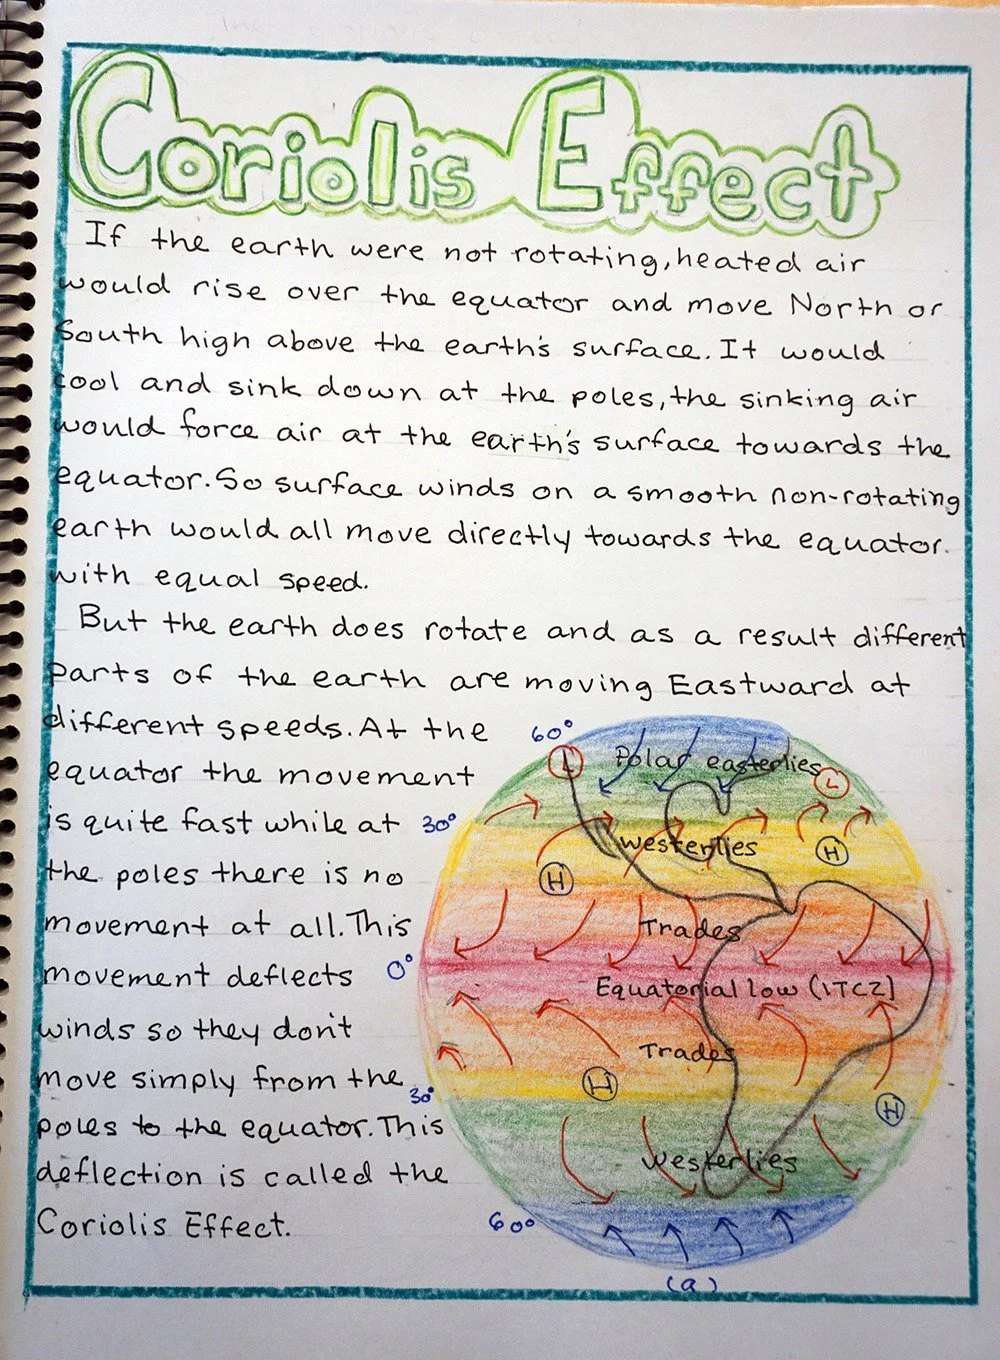 Coriolis Effect
If the earth were not rotating, heated air
would rise over the equator and move North or
South high above the earth's surface. It would
cool and sink down at the poles, the sinking air
would force air at the earth's surface towards the
equator. So surface winds on a smooth non-rotating
earth would all move directly towards the equator.
with equal speed.
But the earth does rotate and as a result different
parts of the earth are moving Eastward at
different speeds. At the
equator the movement
is quite fast while at
the poles there is no
movement at all. This
movement deflects
winds so they don't
move simply from the
poles to the equator. This
deflection is called the
Coriolis Effect.
60°
L
Polar easterlies
L
30°
Westerlies
H
H
Trades
0°
Equatorial low (ITCZ)
Trades
30°
H
H
Westerlies
60°
(a)